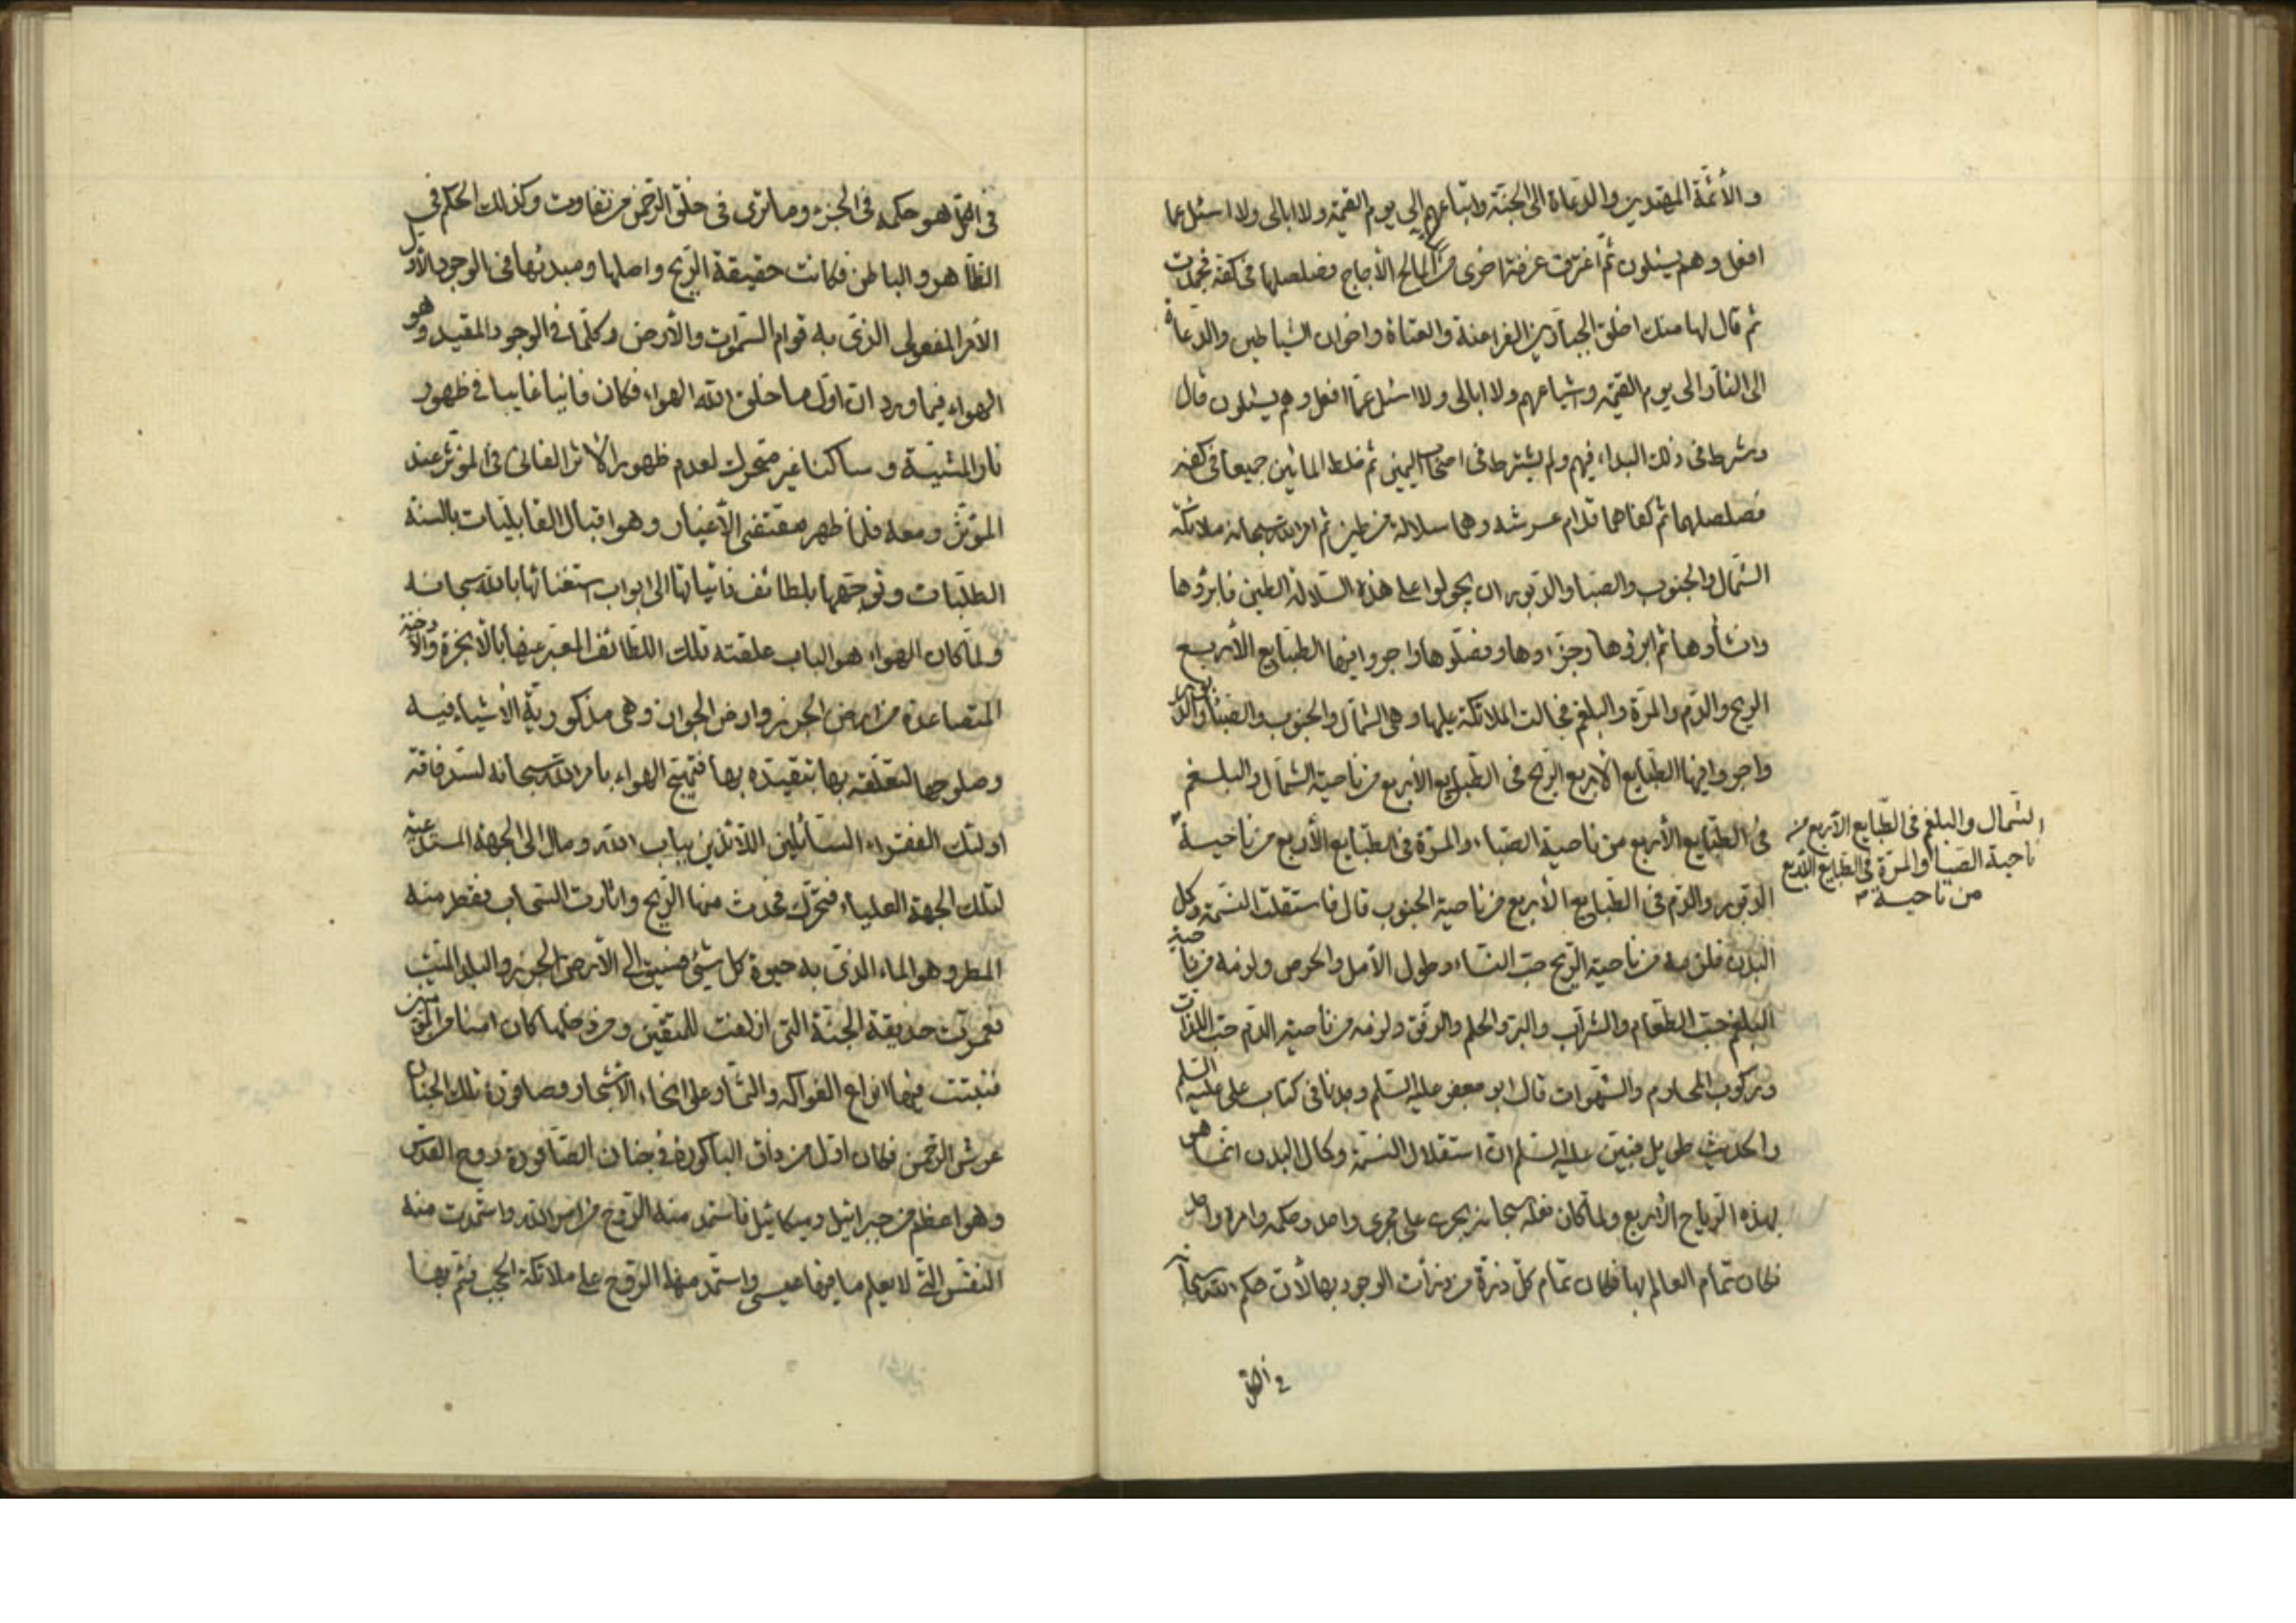 والأئمة المهتدين والدعاة الى الجنة واتباعهم الى يوم القيمة ولا ابالى ولا اسئل عما
افعل وهم يسئلون ثم اغترف غرفة اخرى من المالح الأجاج فصلصلها فى كفه فجمدت
ثم قال لها منك اخلق الجبارين الفراعنة والعتاة واخوان الشياطين والدعاة
الى النار الى يوم القيمة واشياعهم ولا ابالى ولا اسئل عما افعل وهم يسئلون قال
وشرط فى ذلك البداء فيهم ولم يشترط فى اصحاب اليمين ثم خلط المائين جميعا فى كفه
فصلصلهما ثم كفاهما قدام عرشه وهما سلالة من طين ثم امر الله سبحانه ملائكة
الشمال والجنوب والصبا والدبور ان يجولوا على هذه السلالة الطين فابرؤها
وانشأوها ثم ابرؤها وجزاوها وفصلوها واجروا فيها الطبايع الأربع
الريح والدم والمرة والبلغم فجالت الملائكة عليها وهى الشمال والجنوب والصبا والدبور
واجروا فيها الطبايع الأربع الريح فى الطبايع الأربع من ناحية الشمال والبلغم
فى الطبايع الأربع من ناحية الصباء والمرة فى الطبايع الأربع من ناحية
الدبور والدم فى الطبايع الأربع من ناحية الجنوب قال فاستقلت النسمة وكل
البدن فلزمه من ناحية الريح حب النساء وطول الأمل والحرص ولزمه من ناحية
البلغم حب الطعام والشراب والبر والحلم والرفق ولزمه من ناحية الدم حب اللذات
وركوب المحارم والشهوات قال ابو جعفر عليه السلم وجدنا فى كتاب على عليه السلم
والحديث طويل فبين عليه السلم ان استقلال النسمة وكمال البدن انما هى
بهذه الرياح الأربع ولما كان فعله سبحانه يجرى على مجرى واحد وحكمه وامره واحد
فكان تمام العالم بها فكان تمام كل ذرة من ذرات الوجود بها لأن حكم الله سبحانه
الشمال والبلغم فى الطبايع الأربع من
ناحية الصبا والمرة فى الطبايع الأربع
من ناحية
فى الكل هو حكمه فى الجزء وما ترى فى خلق الرحمن من تفاوت وكذلك الحكم فى
الظاهر والباطن فكانت حقيقة الريح واصلها ومبدئها فى الوجود الأول
الأمر المفعولى الذى به قوام السموات والأرض وكلما فى الوجود المقيد وهو
الهواء فيما ورد ان اول ما خلق الله الهواء فكان فانيا غايبا فى ظهور
نار المشية وساكنا غير متحرك لعدم ظهور الأثر الفانى فى المؤثر عند
المؤثر ومعه فلما ظهر مقتضى الأغيار وهو اقبال القابليات بالسنة
الطلبات وتوجهها بلطائف ذاتياتها الى ابواب استغنائها بالله سبحانه
ولما كان الهواء هو الباب علقته تلك اللطائف المعبر عنها بالأبخرة والأدخنة
المتصاعدة من ارض الجرز وارض الجواز وهى مذكورية الأشياء فيه
وصلوحها لتعلقه بها بتقيده بها فتهيج الهواء بامر الله سبحانه لسد فاقة
اولئك الفقراء السائلين اللائذين بباب الله ومال الى الجهة المستدعية
لتلك الجهة العلياء فتحرك فحدث منها الريح واثارت السحاب فقطر منه
المطر وهو الماء الذى به حيوة كل شئ فسيق الى الأرض الجرز والبلد الميت
فعمرت حديقة الجنة التى ازلفت للمتقين ومن دخلها كان امنا
فنبتت فيها انواع الفواكه والثمار على انحاء الأشجار وصاقورة تلك الجنان
عرش الرحمن فكان اول من ذاق الباكورة فى جنان الصاقورة روح القدس
وهو اعظم من جبرائيل وميكائيل فاستمد منه الروح من امر الله واستمدت منه
النفس التى لا يعلم ما فيها عيسى واستمد منها الروح على ملائكة الحجب فتم بها